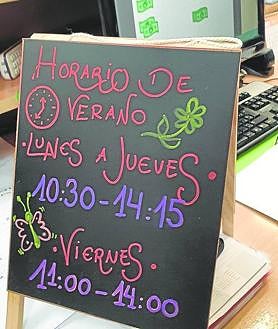 HORARIO DE
VERANO
·LUNES A JUEVES·
10:30-14:15
·VIERNES·
11:00-14:00